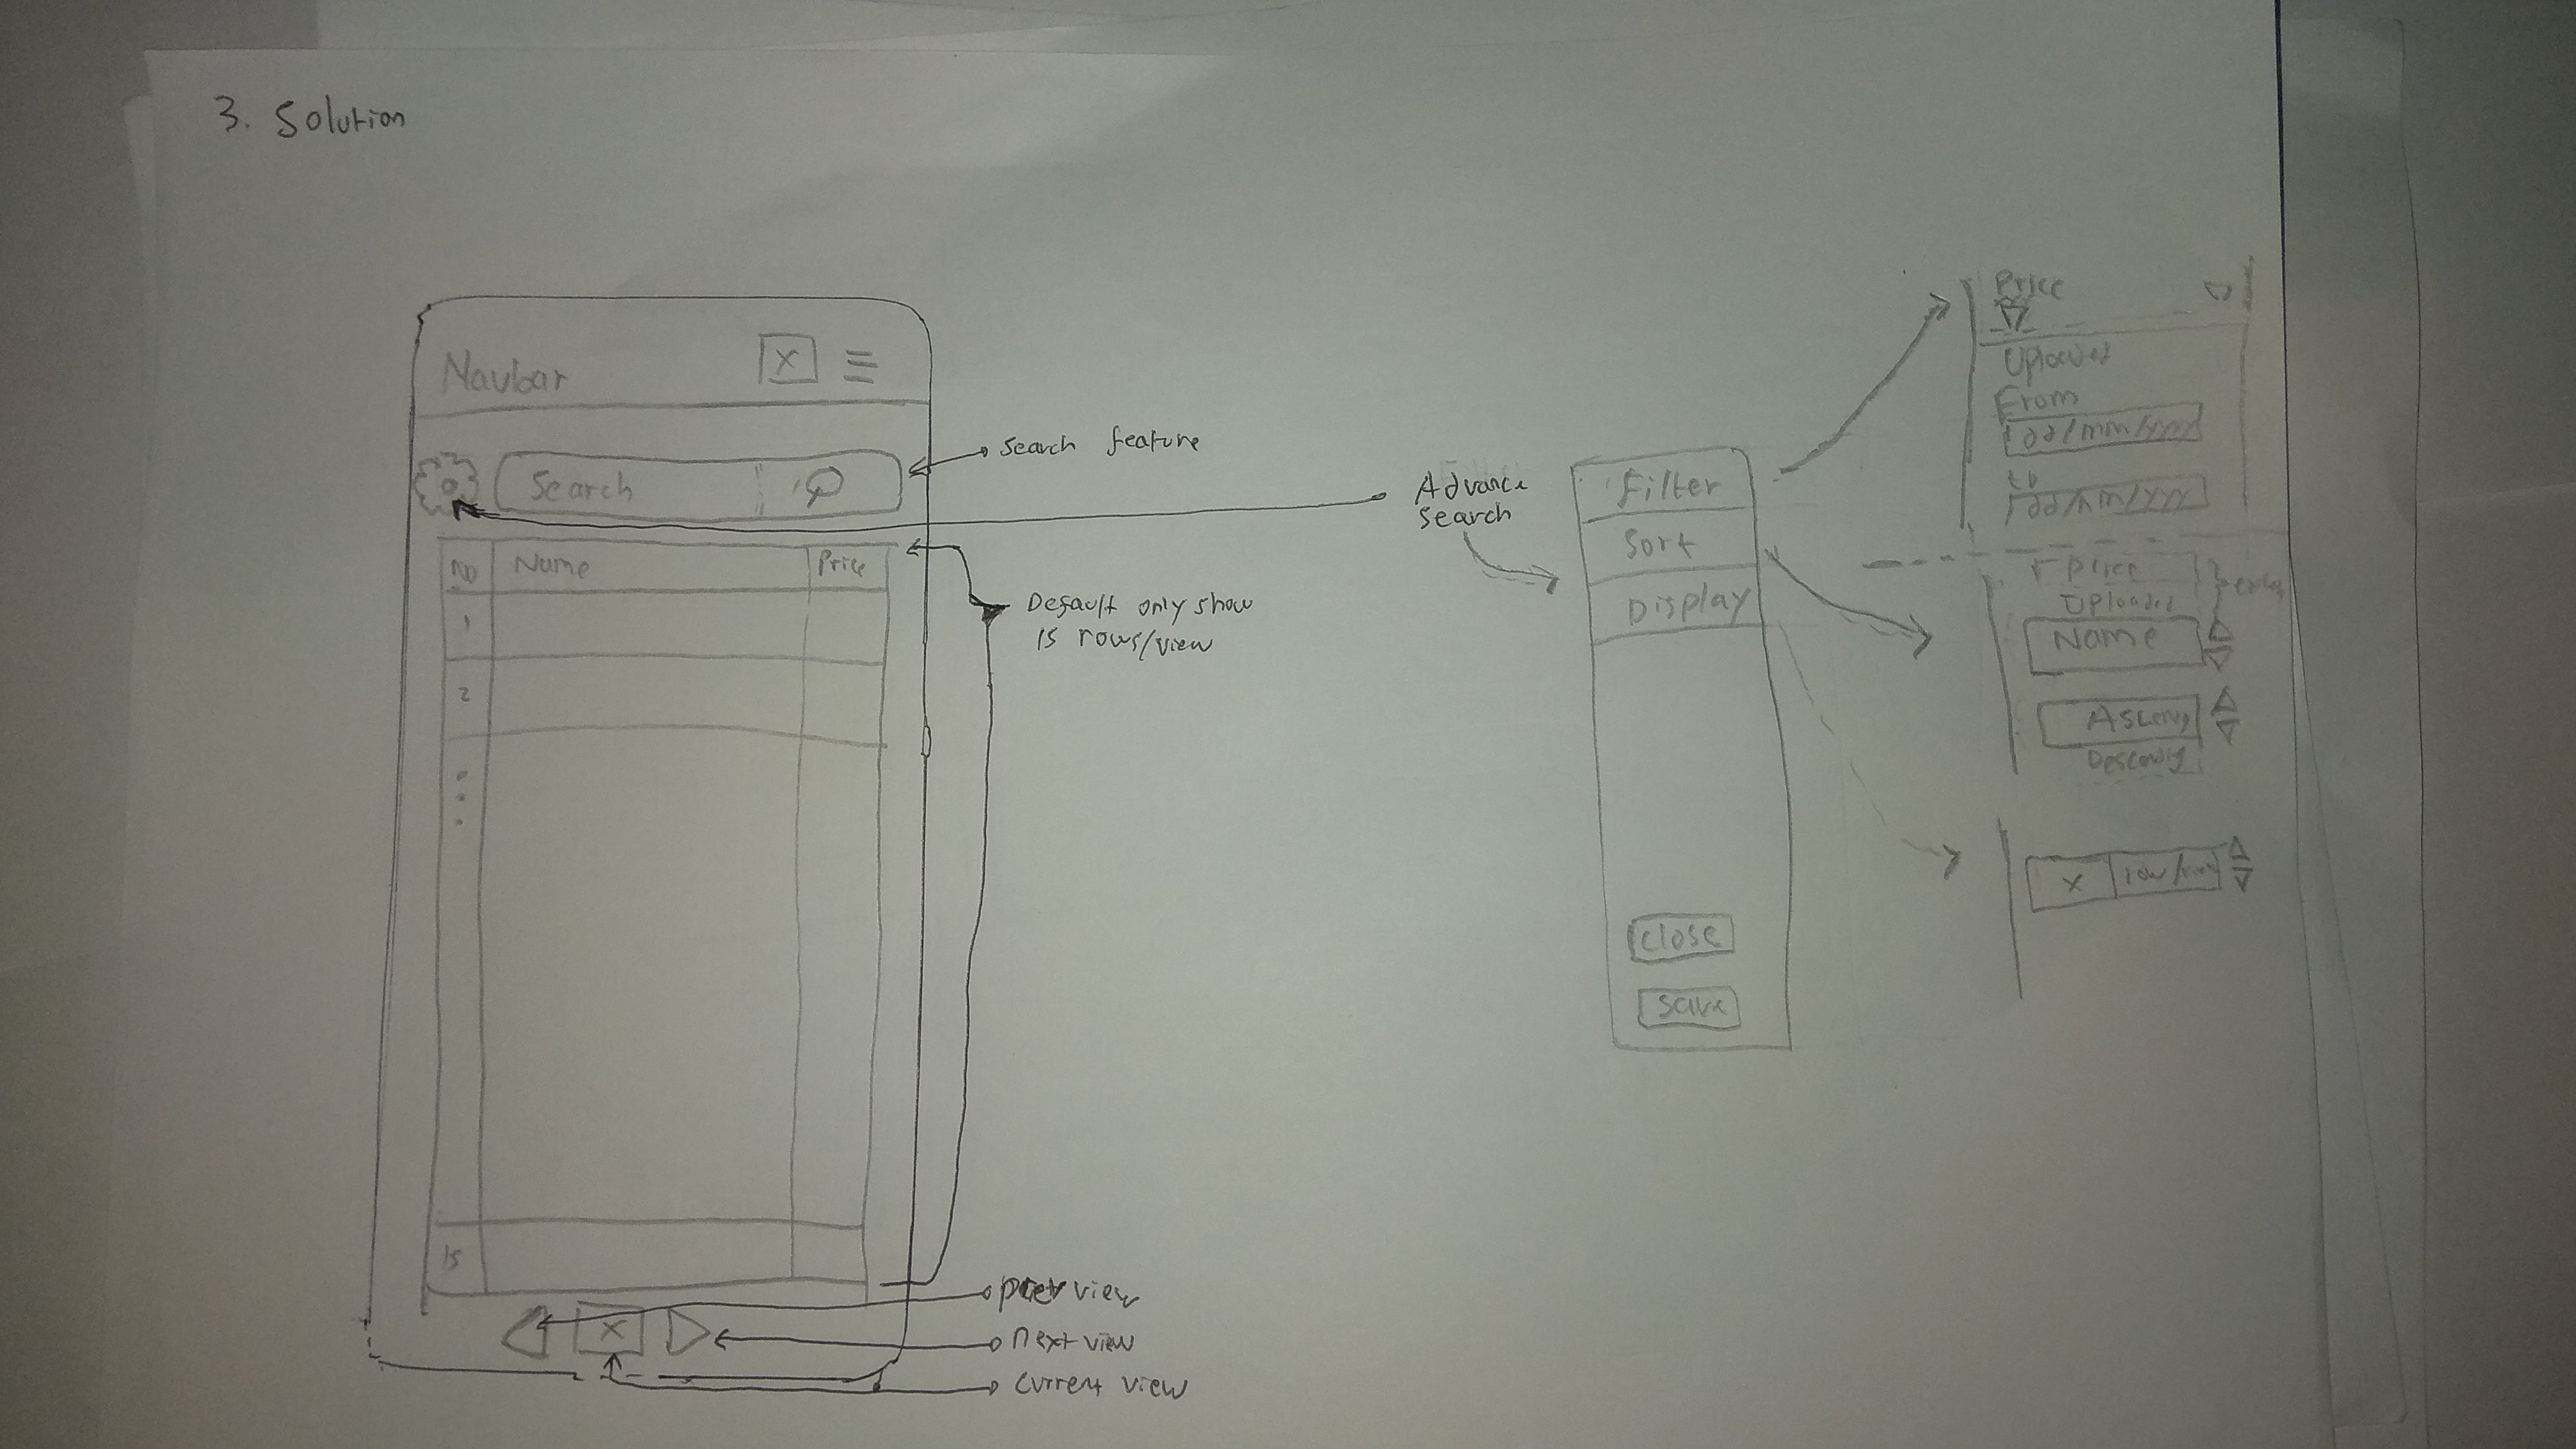 3. Solution
Navbar X
Search
Search feature
No Name Price
1
2
15
Default only show
15 rows/view
prev view
X
next view
current view
Advance
Search
Filter
Sort
Display
Close
Save
Price
Uploaded
From
dd/mm/yyyy
to
dd/mm/yyy
Price
Uploaded
Name
X row/view